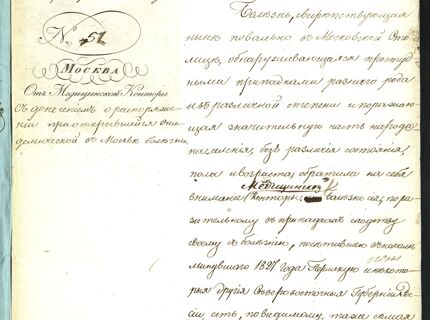 № 51
МОСКВА
Отъ Медицинской Конторы
Съ донесеніемъ о распоряже-
ніи при открывшейся эпи-
демической въ Москвѣ болѣзни.
Болѣзнь, свирѣпствующая
нынѣ повально въ Московской Сто-
лицѣ, обнаруживающаяся простуд-
ными припадками разнаго рода
и въ различной степени и поражаю-
щая значительную часть народо-
населенія, безъ различія состоянія,
пола и возраста, обратила на себя
Медицинской
вниманіе Конторы. болѣзнь сія, пора-
зительному въ припадкахъ сходству
своему съ болѣзнію, посѣтившею въ началѣ
минувшаго 1827 года Пермскую и нѣкото-
рыя другія Сѣверовосточныя Губерніи Рос-
сіи, есть, по видимому, таже самая